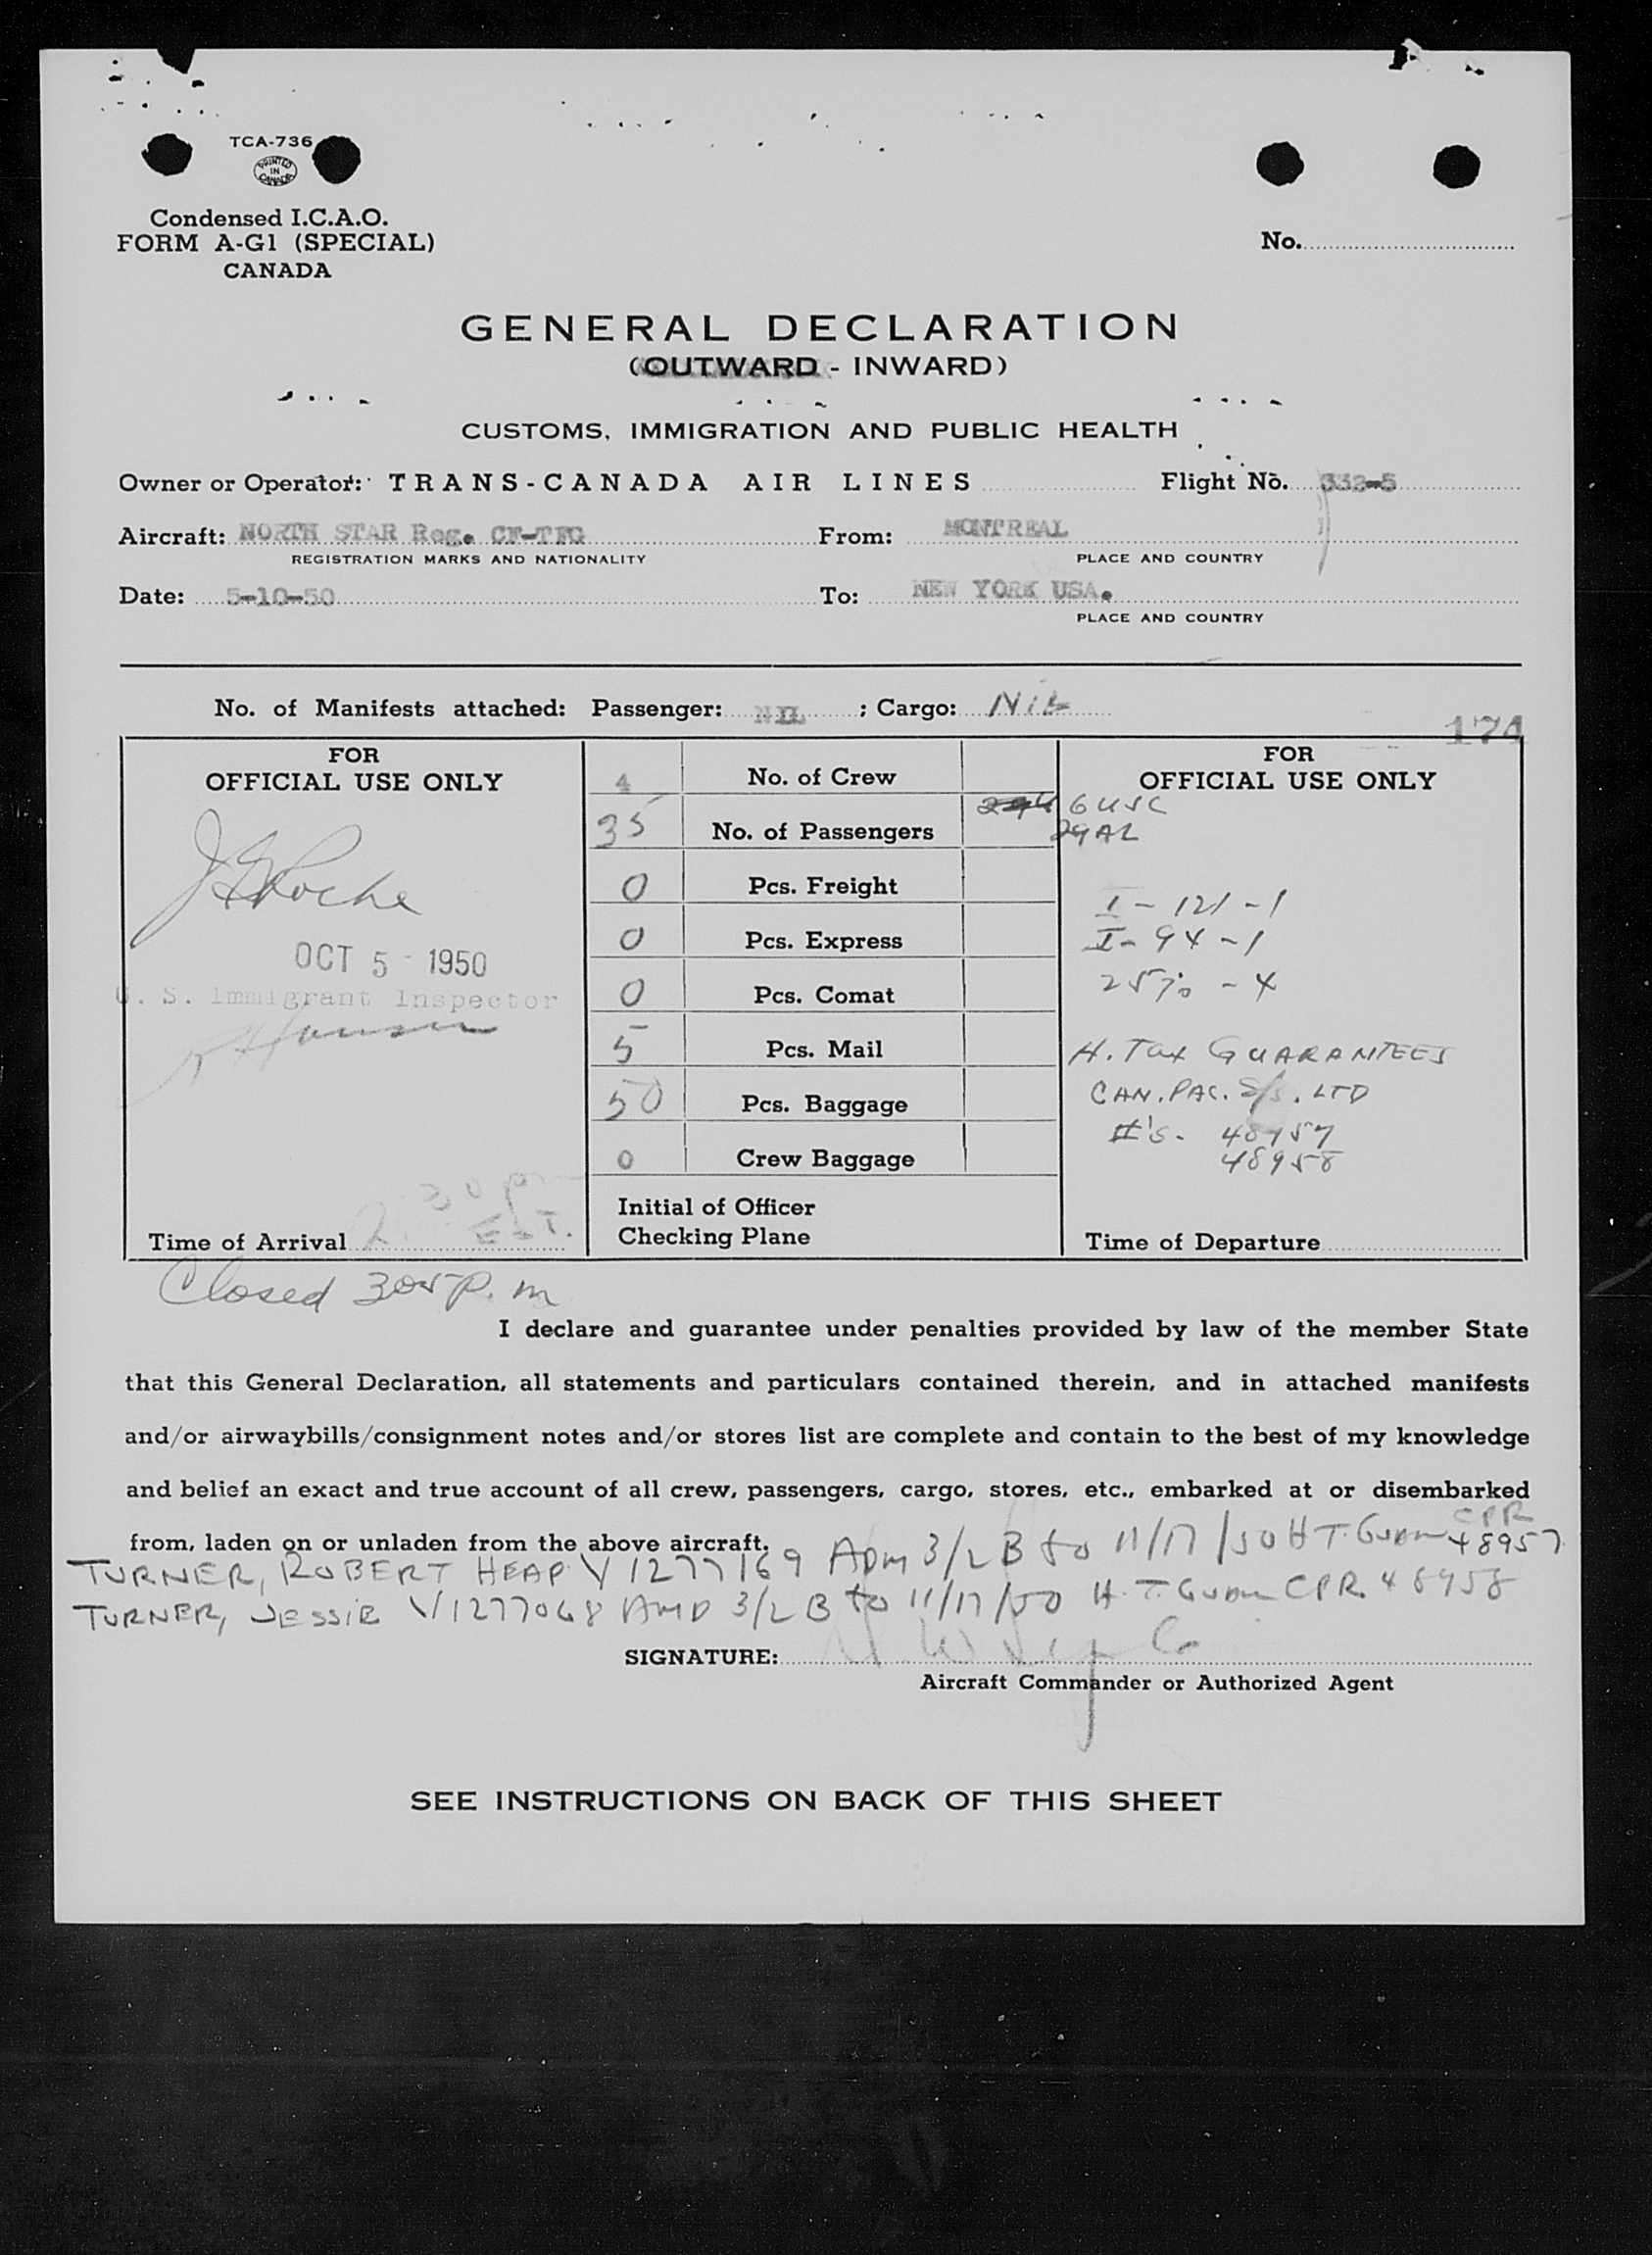 TCA-736
PRINTED IN CANADA
Condensed I.C.A.O.
FORM A-G1 (SPECIAL)
CANADA
No.
GENERAL DECLARATION
(OUTWARD - INWARD)
CUSTOMS, IMMIGRATION AND PUBLIC HEALTH
Owner or Operator: TRANS-CANADA AIR LINES Flight No. 332-5
Aircraft: NORTH STAR Reg. CF-TFG From: MONTREAL
REGISTRATION MARKS AND NATIONALITY PLACE AND COUNTRY
Date: 5-10-50 To: NEW YORK USA.
PLACE AND COUNTRY
No. of Manifests attached: Passenger: NIL ; Cargo: Nil
174
FOR
OFFICIAL USE ONLY
Roche
OCT 5 - 1950
U. S. Immigrant Inspector
Time of Arrival 2:30 pm
E.S.T.
4 No. of Crew
35 No. of Passengers
0 Pcs. Freight
0 Pcs. Express
0 Pcs. Comat
5 Pcs. Mail
50 Pcs. Baggage
0 Crew Baggage
Initial of Officer
Checking Plane
FOR
OFFICIAL USE ONLY
6 USC
29 AL
I - 121 - 1
I - 94 - 1
257a - 4
H. Tax GUARANTEES
CAN. PAC. S/S. LTD
#'s. 48957
48958
Time of Departure
Closed 305 P. m
I declare and guarantee under penalties provided by law of the member State
that this General Declaration, all statements and particulars contained therein, and in attached manifests
and/or airwaybills/consignment notes and/or stores list are complete and contain to the best of my knowledge
and belief an exact and true account of all crew, passengers, cargo, stores, etc., embarked at or disembarked
from, laden on or unladen from the above aircraft.
TURNER, ROBERT HEAP V 1277169 ADM 3/2 B to 11/17/50 H T. Guar CPR 48957
TURNER, JESSIE V1277068 AMD 3/2 B to 11/17/50 H. T. Guar CPR 48958
SIGNATURE:
Aircraft Commander or Authorized Agent
SEE INSTRUCTIONS ON BACK OF THIS SHEET